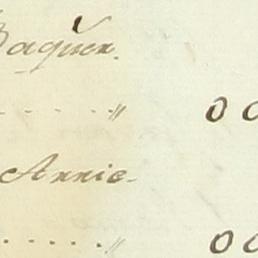 Baquer.
...... " 00
Annie.
...... " 00